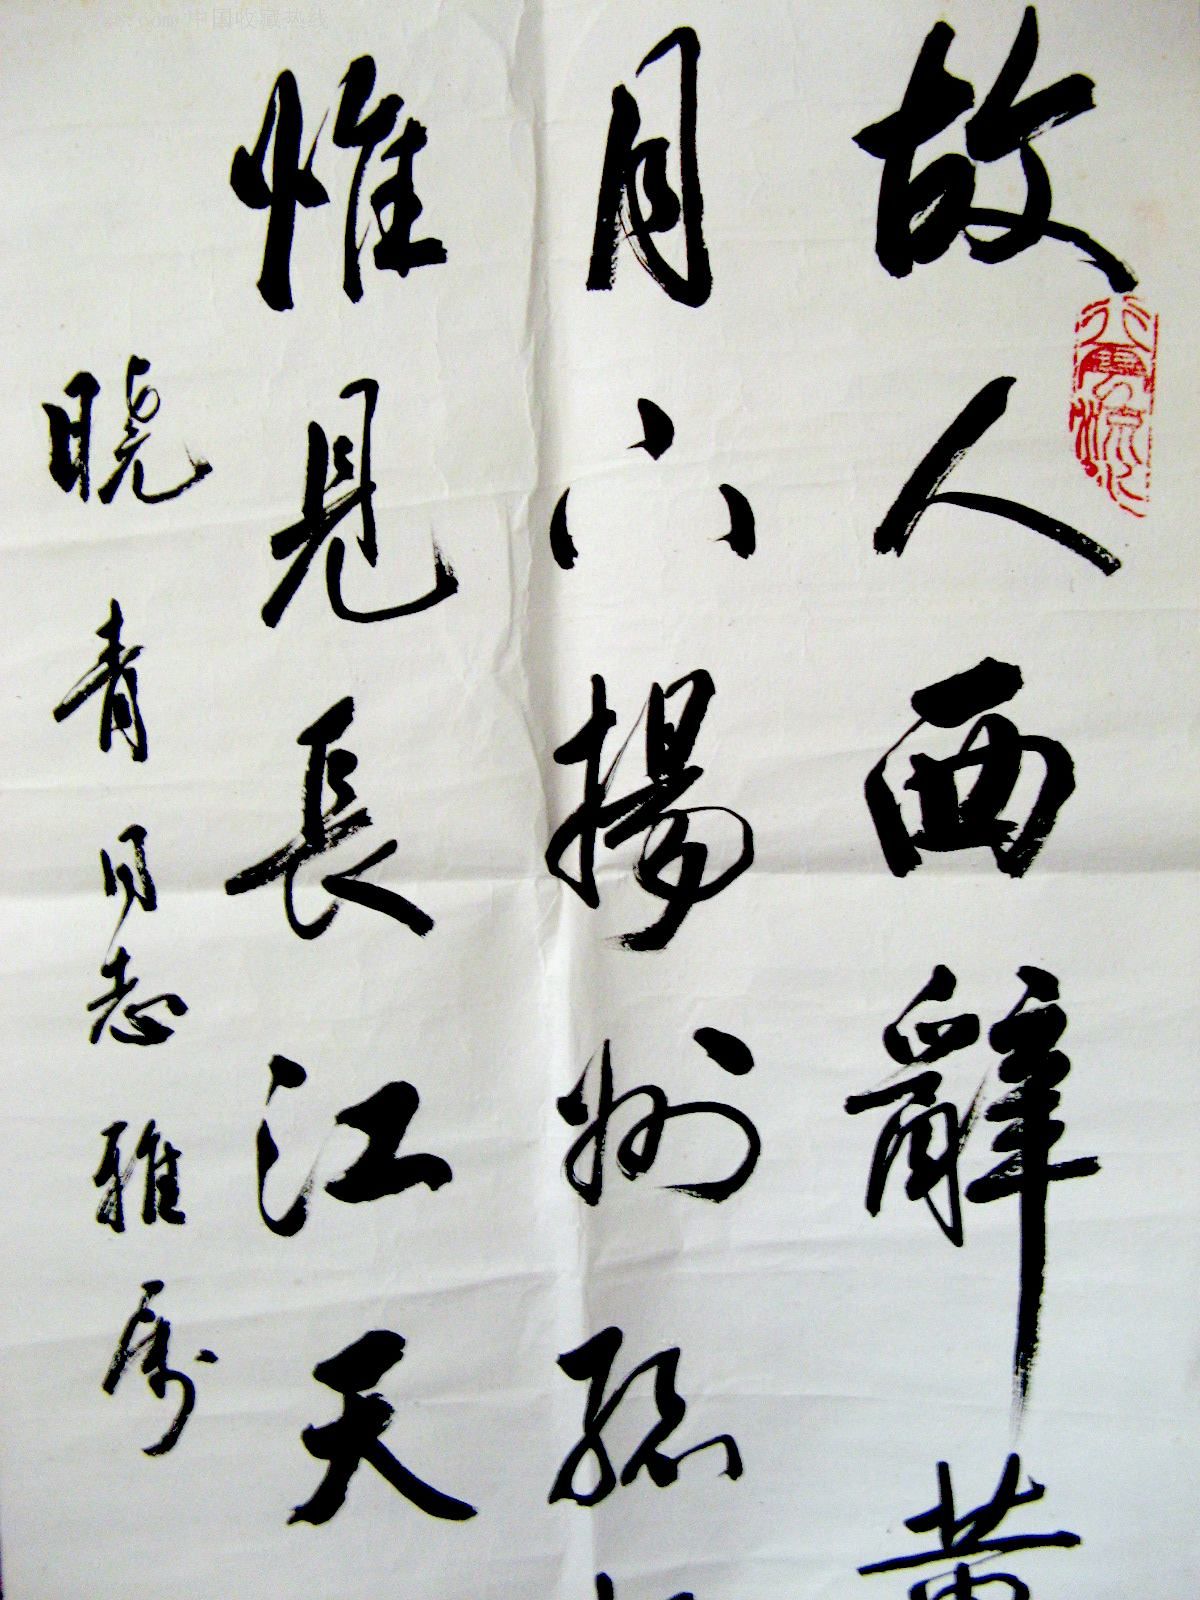 故人西辭黄
月下揚州孤
惟見長江天
曉青同志雅属
行雲流水
中国收藏热线